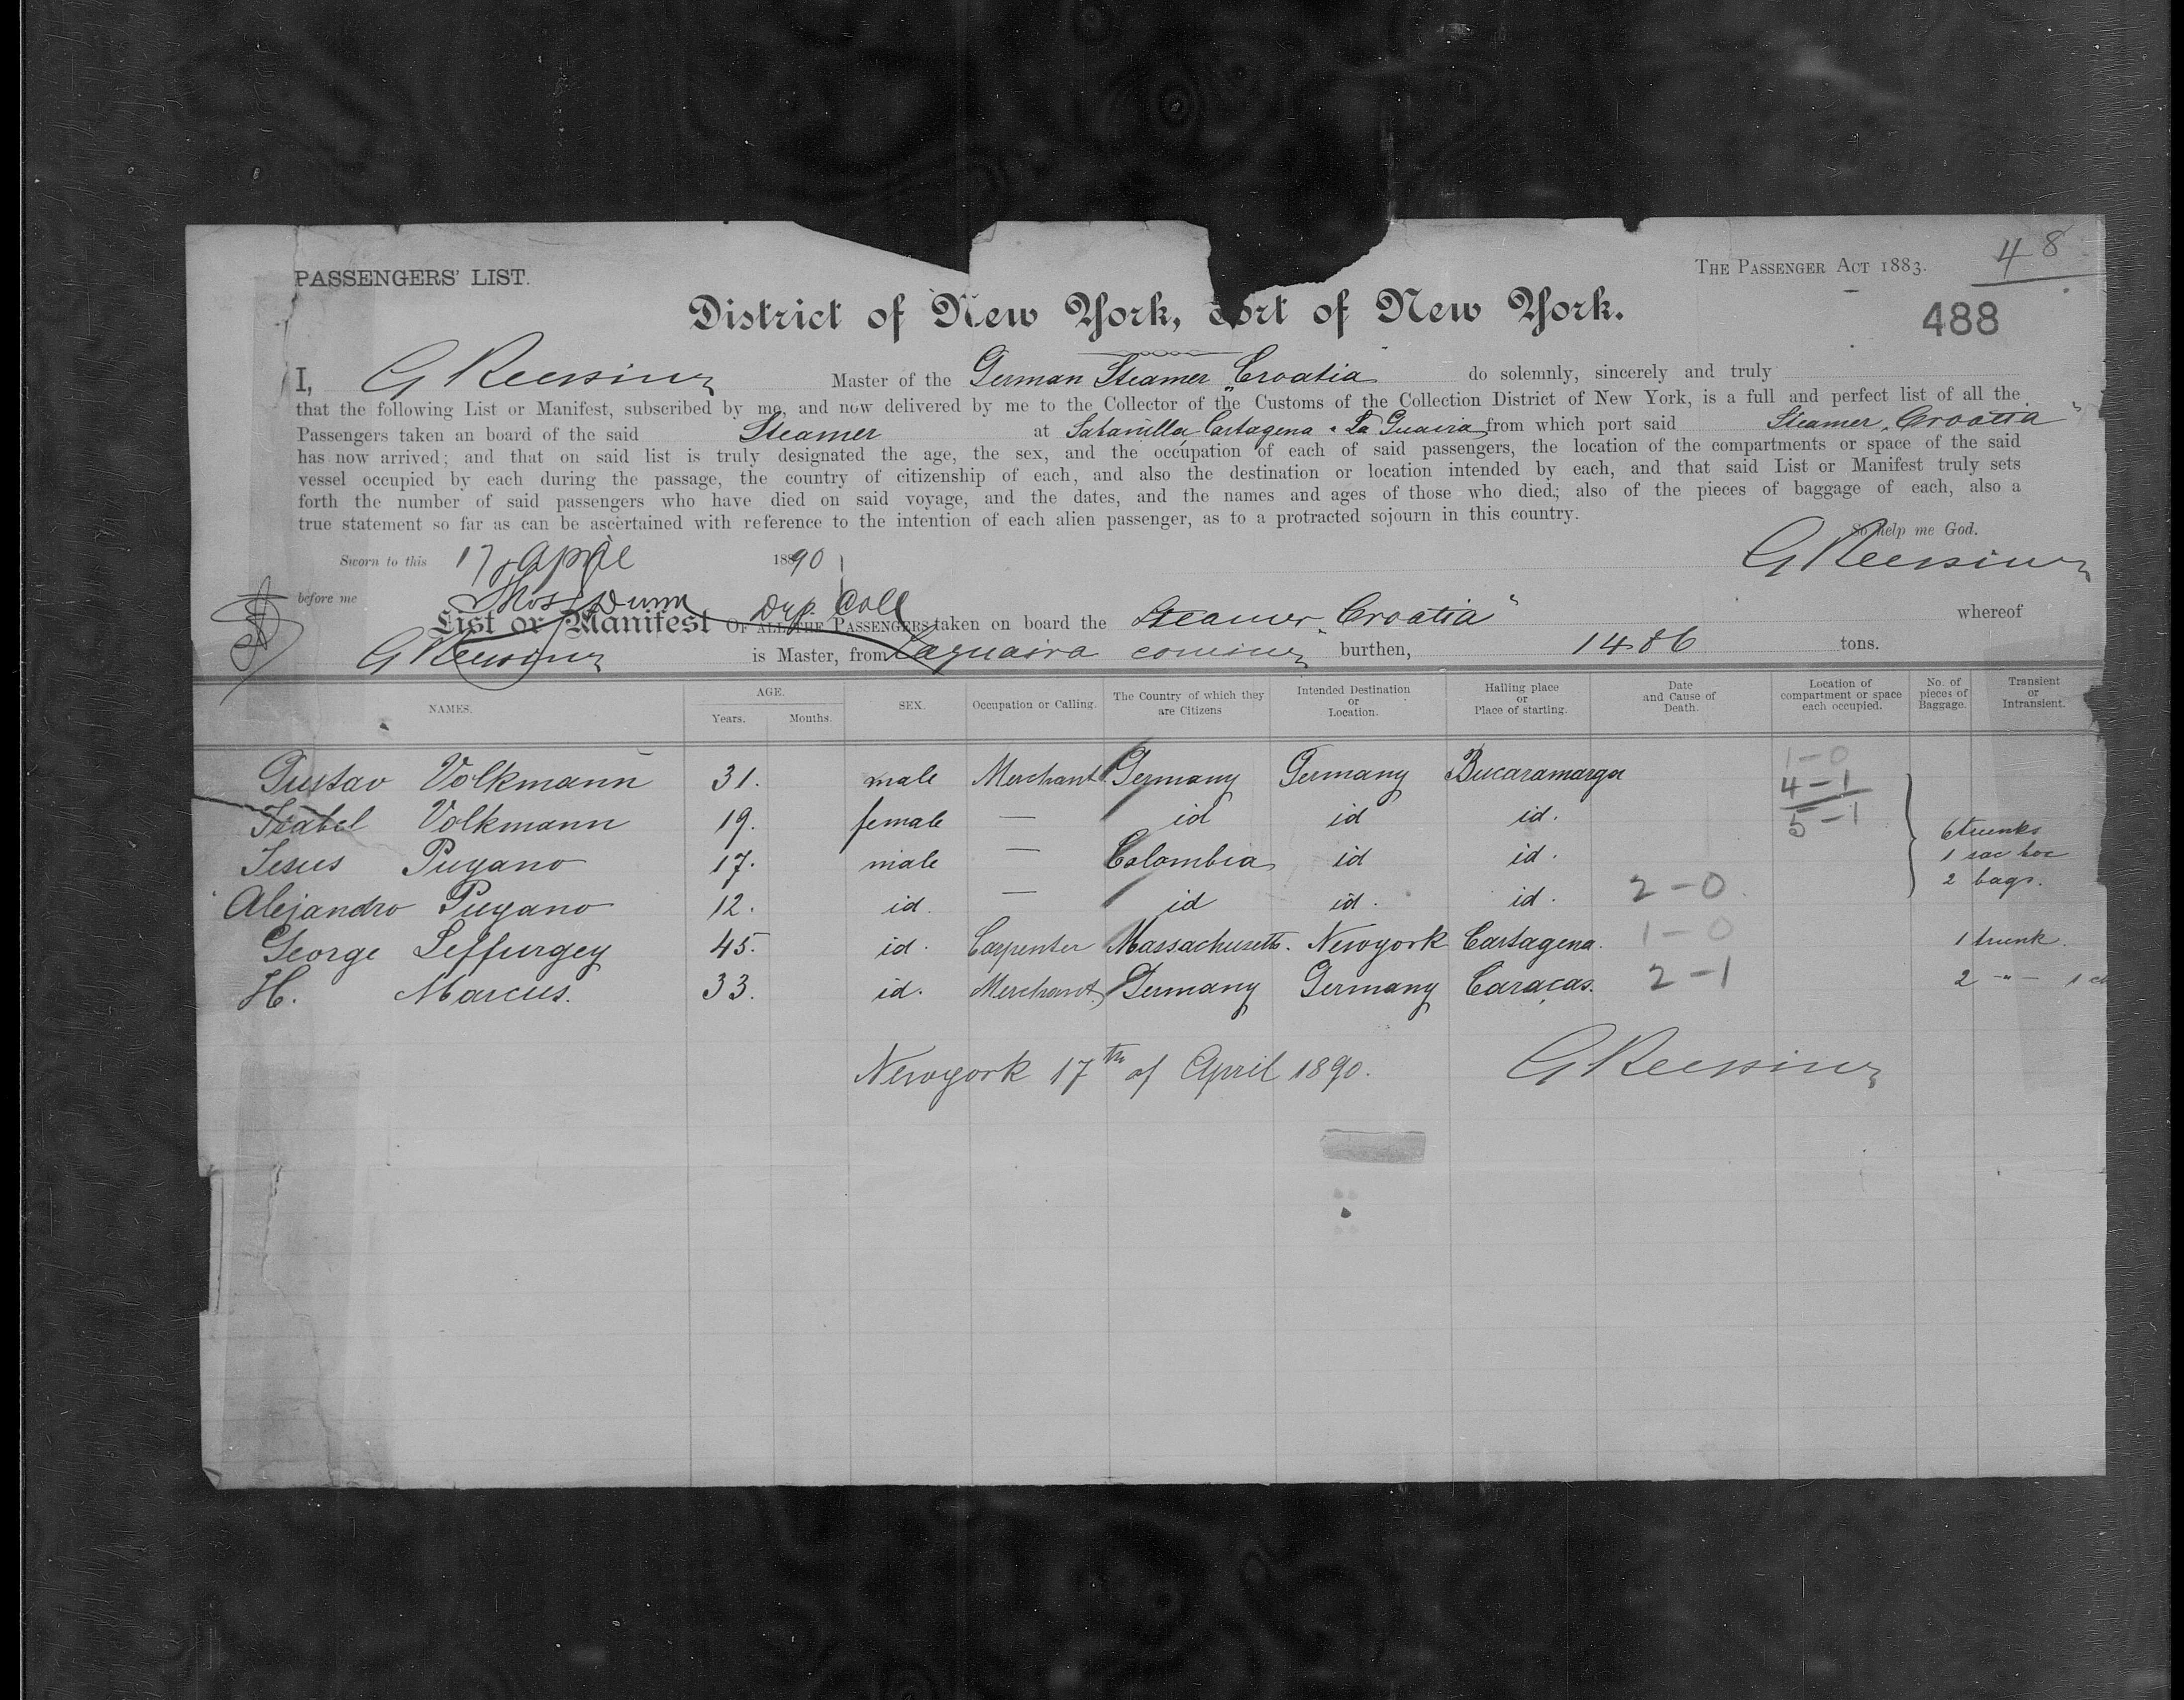 48
PASSENGERS' LIST.
THE PASSENGER ACT 1883.
488
District of New York, ort of New York.
I, G Reessing Master of the German Steamer „Croatia do solemnly, sincerely and truly
that the following List or Manifest, subscribed by me, and now delivered by me to the Collector of the Customs of the Collection District of New York, is a full and perfect list of all the
Passengers taken an board of the said Steamer at Savanilla, Cartagena & La Guaira from which port said Steamer „Croatia"
has now arrived; and that on said list is truly designated the age, the sex, and the occupation of each of said passengers, the location of the compartments or space of the said
vessel occupied by each during the passage, the country of citizenship of each, and also the destination or location intended by each, and that said List or Manifest truly sets
forth the number of said passengers who have died on said voyage, and the dates, and the names and ages of those who died; also of the pieces of baggage of each, also a
true statement so far as can be ascertained with reference to the intention of each alien passenger, as to a protracted sojourn in this country.
So help me God.
Sworn to this 17 April 1890 G Reessing
before me Thos Dunn Dep. Coll
List or Manifest OF ALL THE PASSENGERS taken on board the Steamer „Croatia" whereof
G Reessing is Master, from Laguaira coming burthen, 1486 tons.
NAMES. AGE. Years. Months. SEX. Occupation or Calling. The Country of which they are Citizens Intended Destination or Location. Hailing place or Place of starting. Date and Cause of Death. Location of compartment or space each occupied. No. of pieces of Baggage. Transient or Intransient.
Gustav Volkmann 31. male Merchant Germany Germany Bucaramanga 1-0
4-1
Isabel Volkmann 19. female — id id id. 5-1 6 trunks
Jesus Puyano 17. male — Colombia id id. 1 sac
Alejandro Puyano 12. id. — id id. id. 2-0 2 bags.
George Leffurgey 45. id. Carpenter Massachusetts. Newyork Cartagena. 1-0 1 trunk.
H. Marcus. 33. id. Merchant Germany Germany Caracas. 2-1 2 -"- 1
Newyork 17th of April 1890. G Reessing